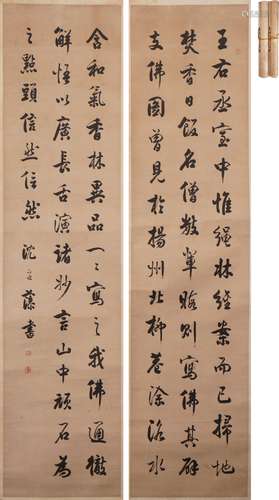 王右丞室中惟繩床經案而已掃地
焚香日飯名僧數輩暇則寫佛其辟
支佛圖曾見於揚州北柳巷涂洛水
含和氣香林異品一一寫之我佛通徹
解悟以廣長舌演諸妙言山中頑石為
之點頭信然信然 沈荃藻書